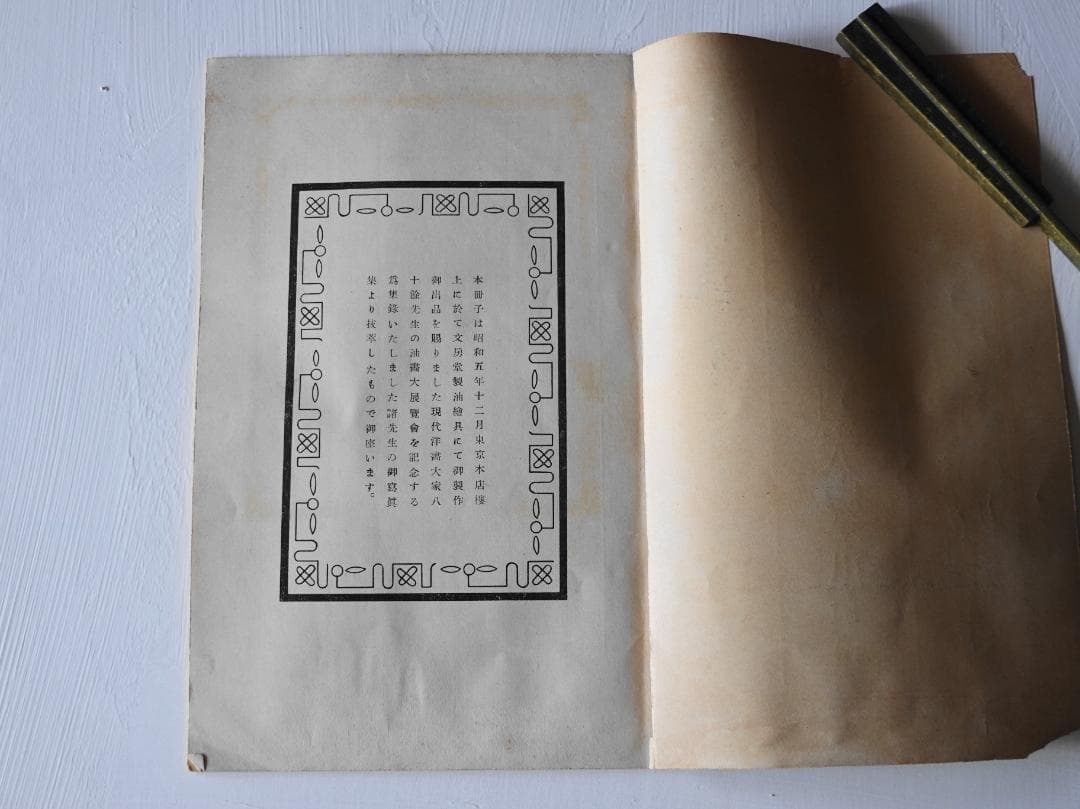 本冊子は昭和五年十二月東京本店樓
上に於て文房堂製油繪具にて御製作
御出品を賜りました現代洋畵大家八
十餘先生の油畵大展覽會を記念する
爲集錄いたしました諸先生の御寫眞
集より拔萃したもので御座います。